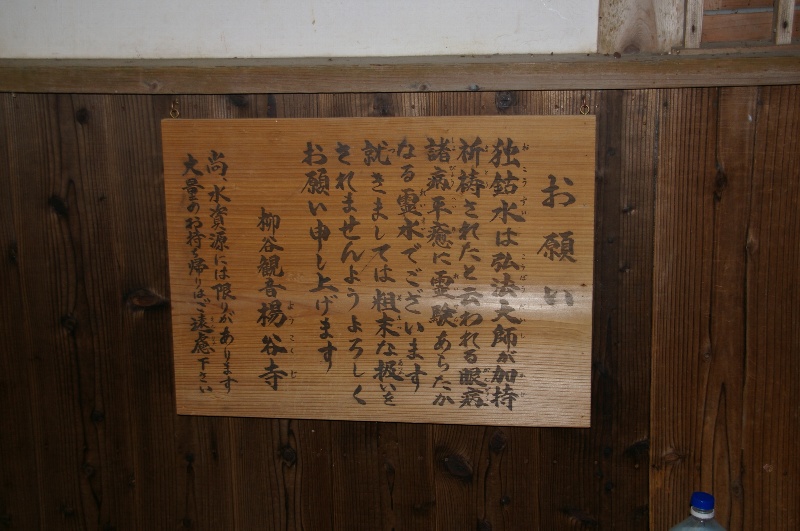 お願い
独鈷水は弘法大師が加持
祈祷されたと云われる眼病
諸病平癒に霊験あらたか
なる霊水でございます
就きましては粗末な扱いを
されませんようよろしく
お願い申し上げます
柳谷観音楊谷寺
尚、水資源には限りがあります
大量のお持ち帰りはご遠慮下さい